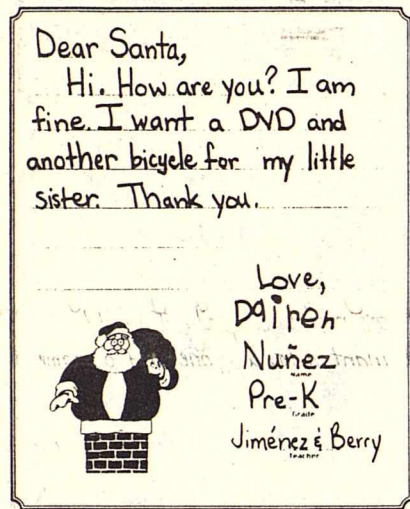 Dear Santa,
Hi. How are you? I am
fine. I want a DVD and
another bicycle for my little
sister. Thank you.
Love,
Dairen
Nuñez
Name
Pre-K
Grade
Jiménez & Berry
Teacher